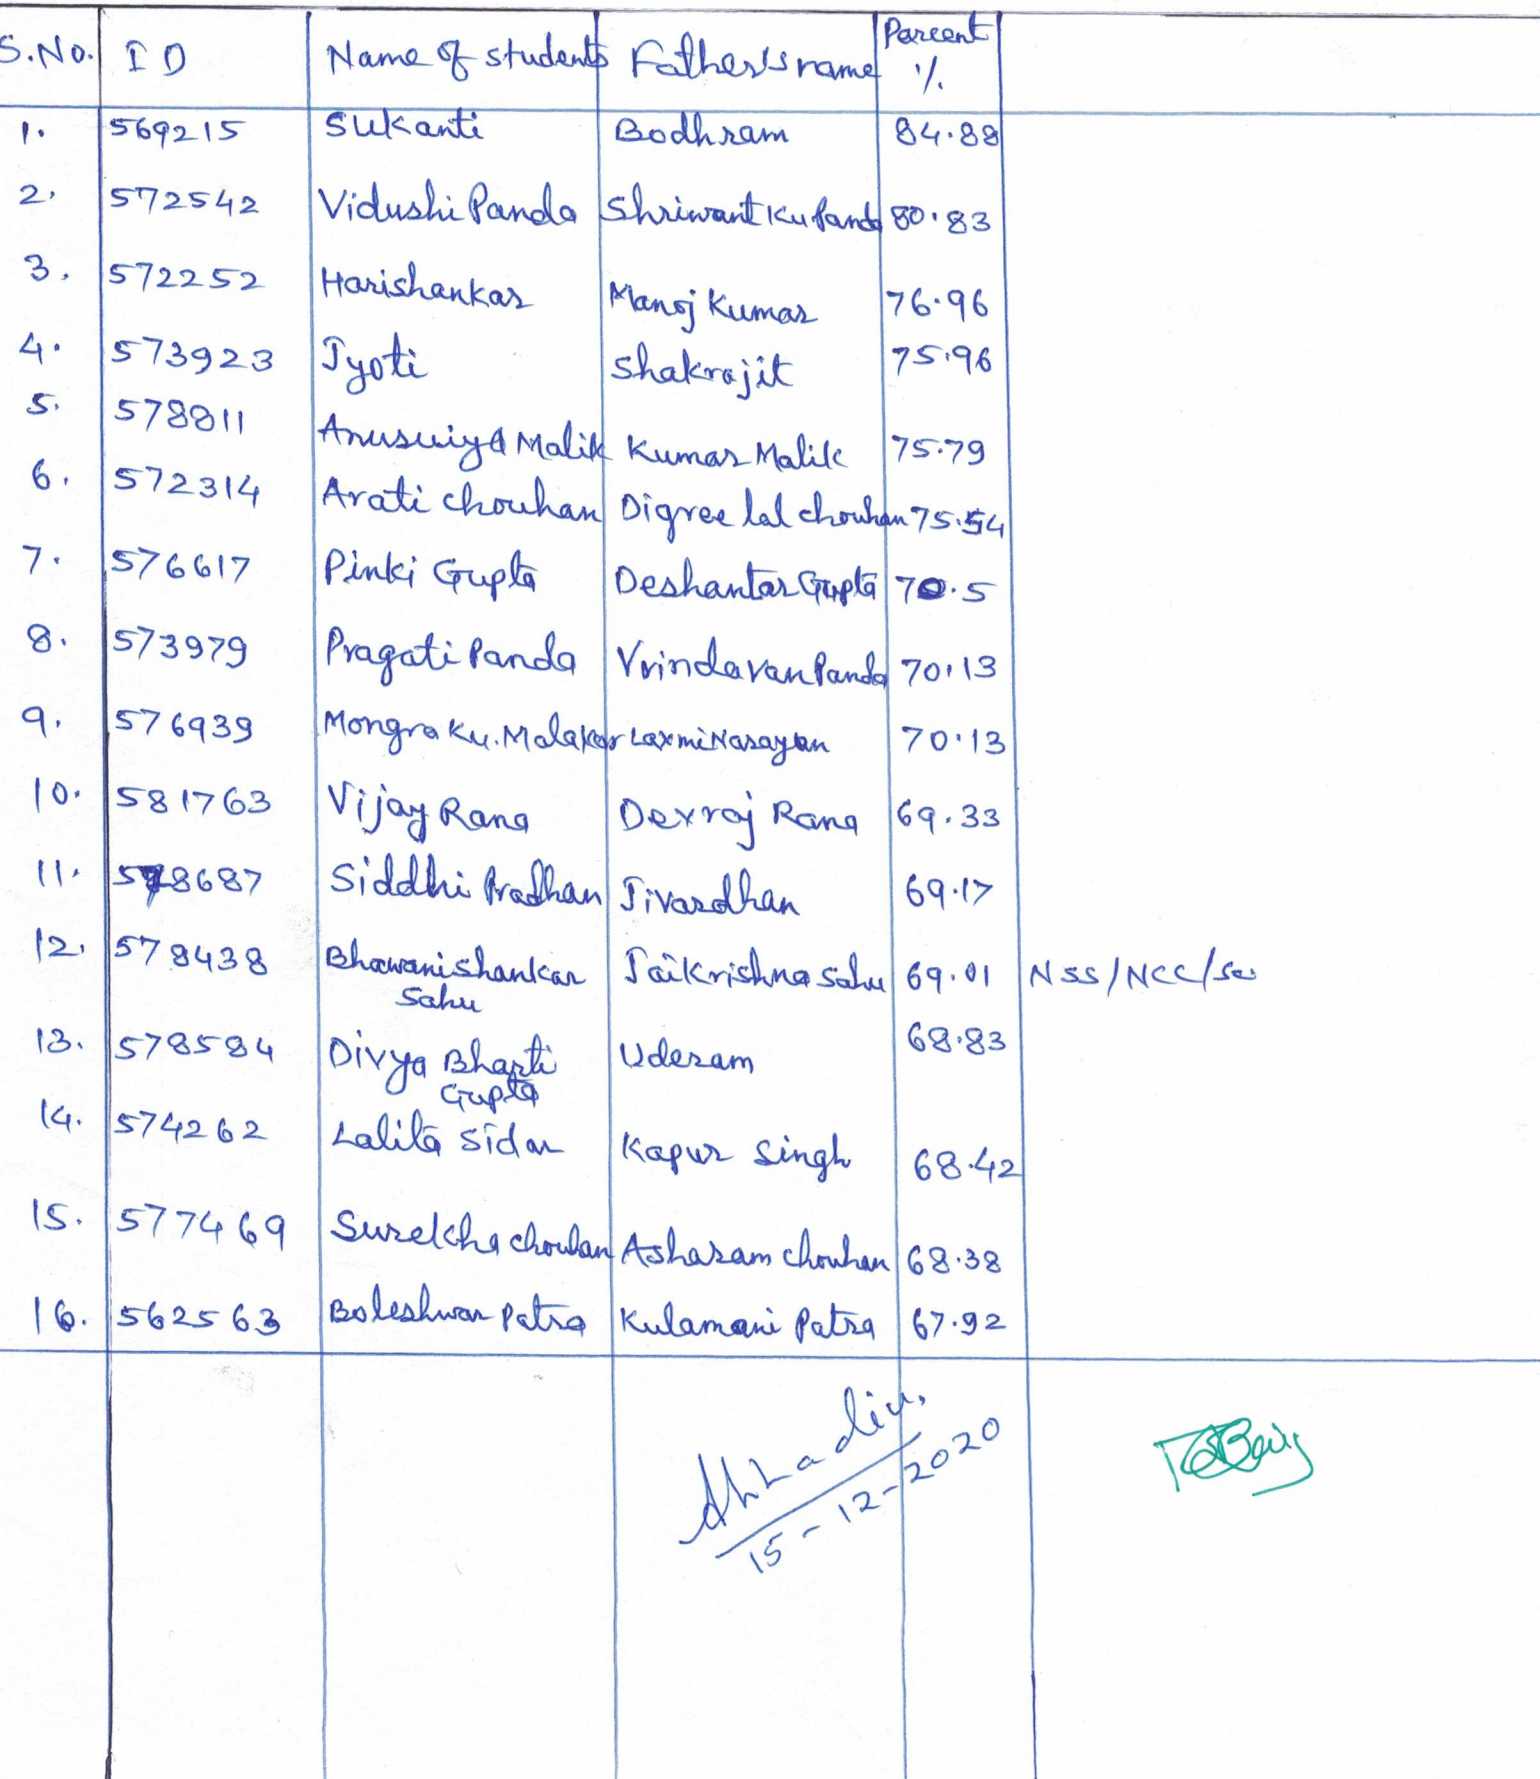 S.No. ID Name of students Father's name Parcent %
1. 569215 Sukanti Bodhram 84.88
2. 572542 Vidushi Panda Shriwant Ku Panda 80.83
3. 572252 Harishankar Manoj Kumar 76.96
4. 573923 Jyoti Shakrajit 75.96
5. 578811 Anusuiya Malik Kumar Malik 75.79
6. 572314 Arati Chouhan Digree lal chouhan 75.54
7. 576617 Pinki Gupta Deshantar Gupta 70.5
8. 573979 Pragati Panda Vrindavan Panda 70.13
9. 576939 Mongra Ku. Malakar Laxmi Narayan 70.13
10. 581763 Vijay Rana Devraj Rana 69.33
11. 578687 Siddhi Pradhan Jivardhan 69.17
12. 578438 Bhawanishankar Jaikrishna Sahu 69.01 NSS/NCC/Sc
Sahu
13. 578584 Divya Bharti Uderam 68.83
Gupta
14. 574262 Lalita Sidar Kapur Singh 68.42
15. 577469 Surekha chouhan Asharam chouhan 68.38
16. 562563 Boleshwar Patra Kulamani Patra 67.92
15-12-2020